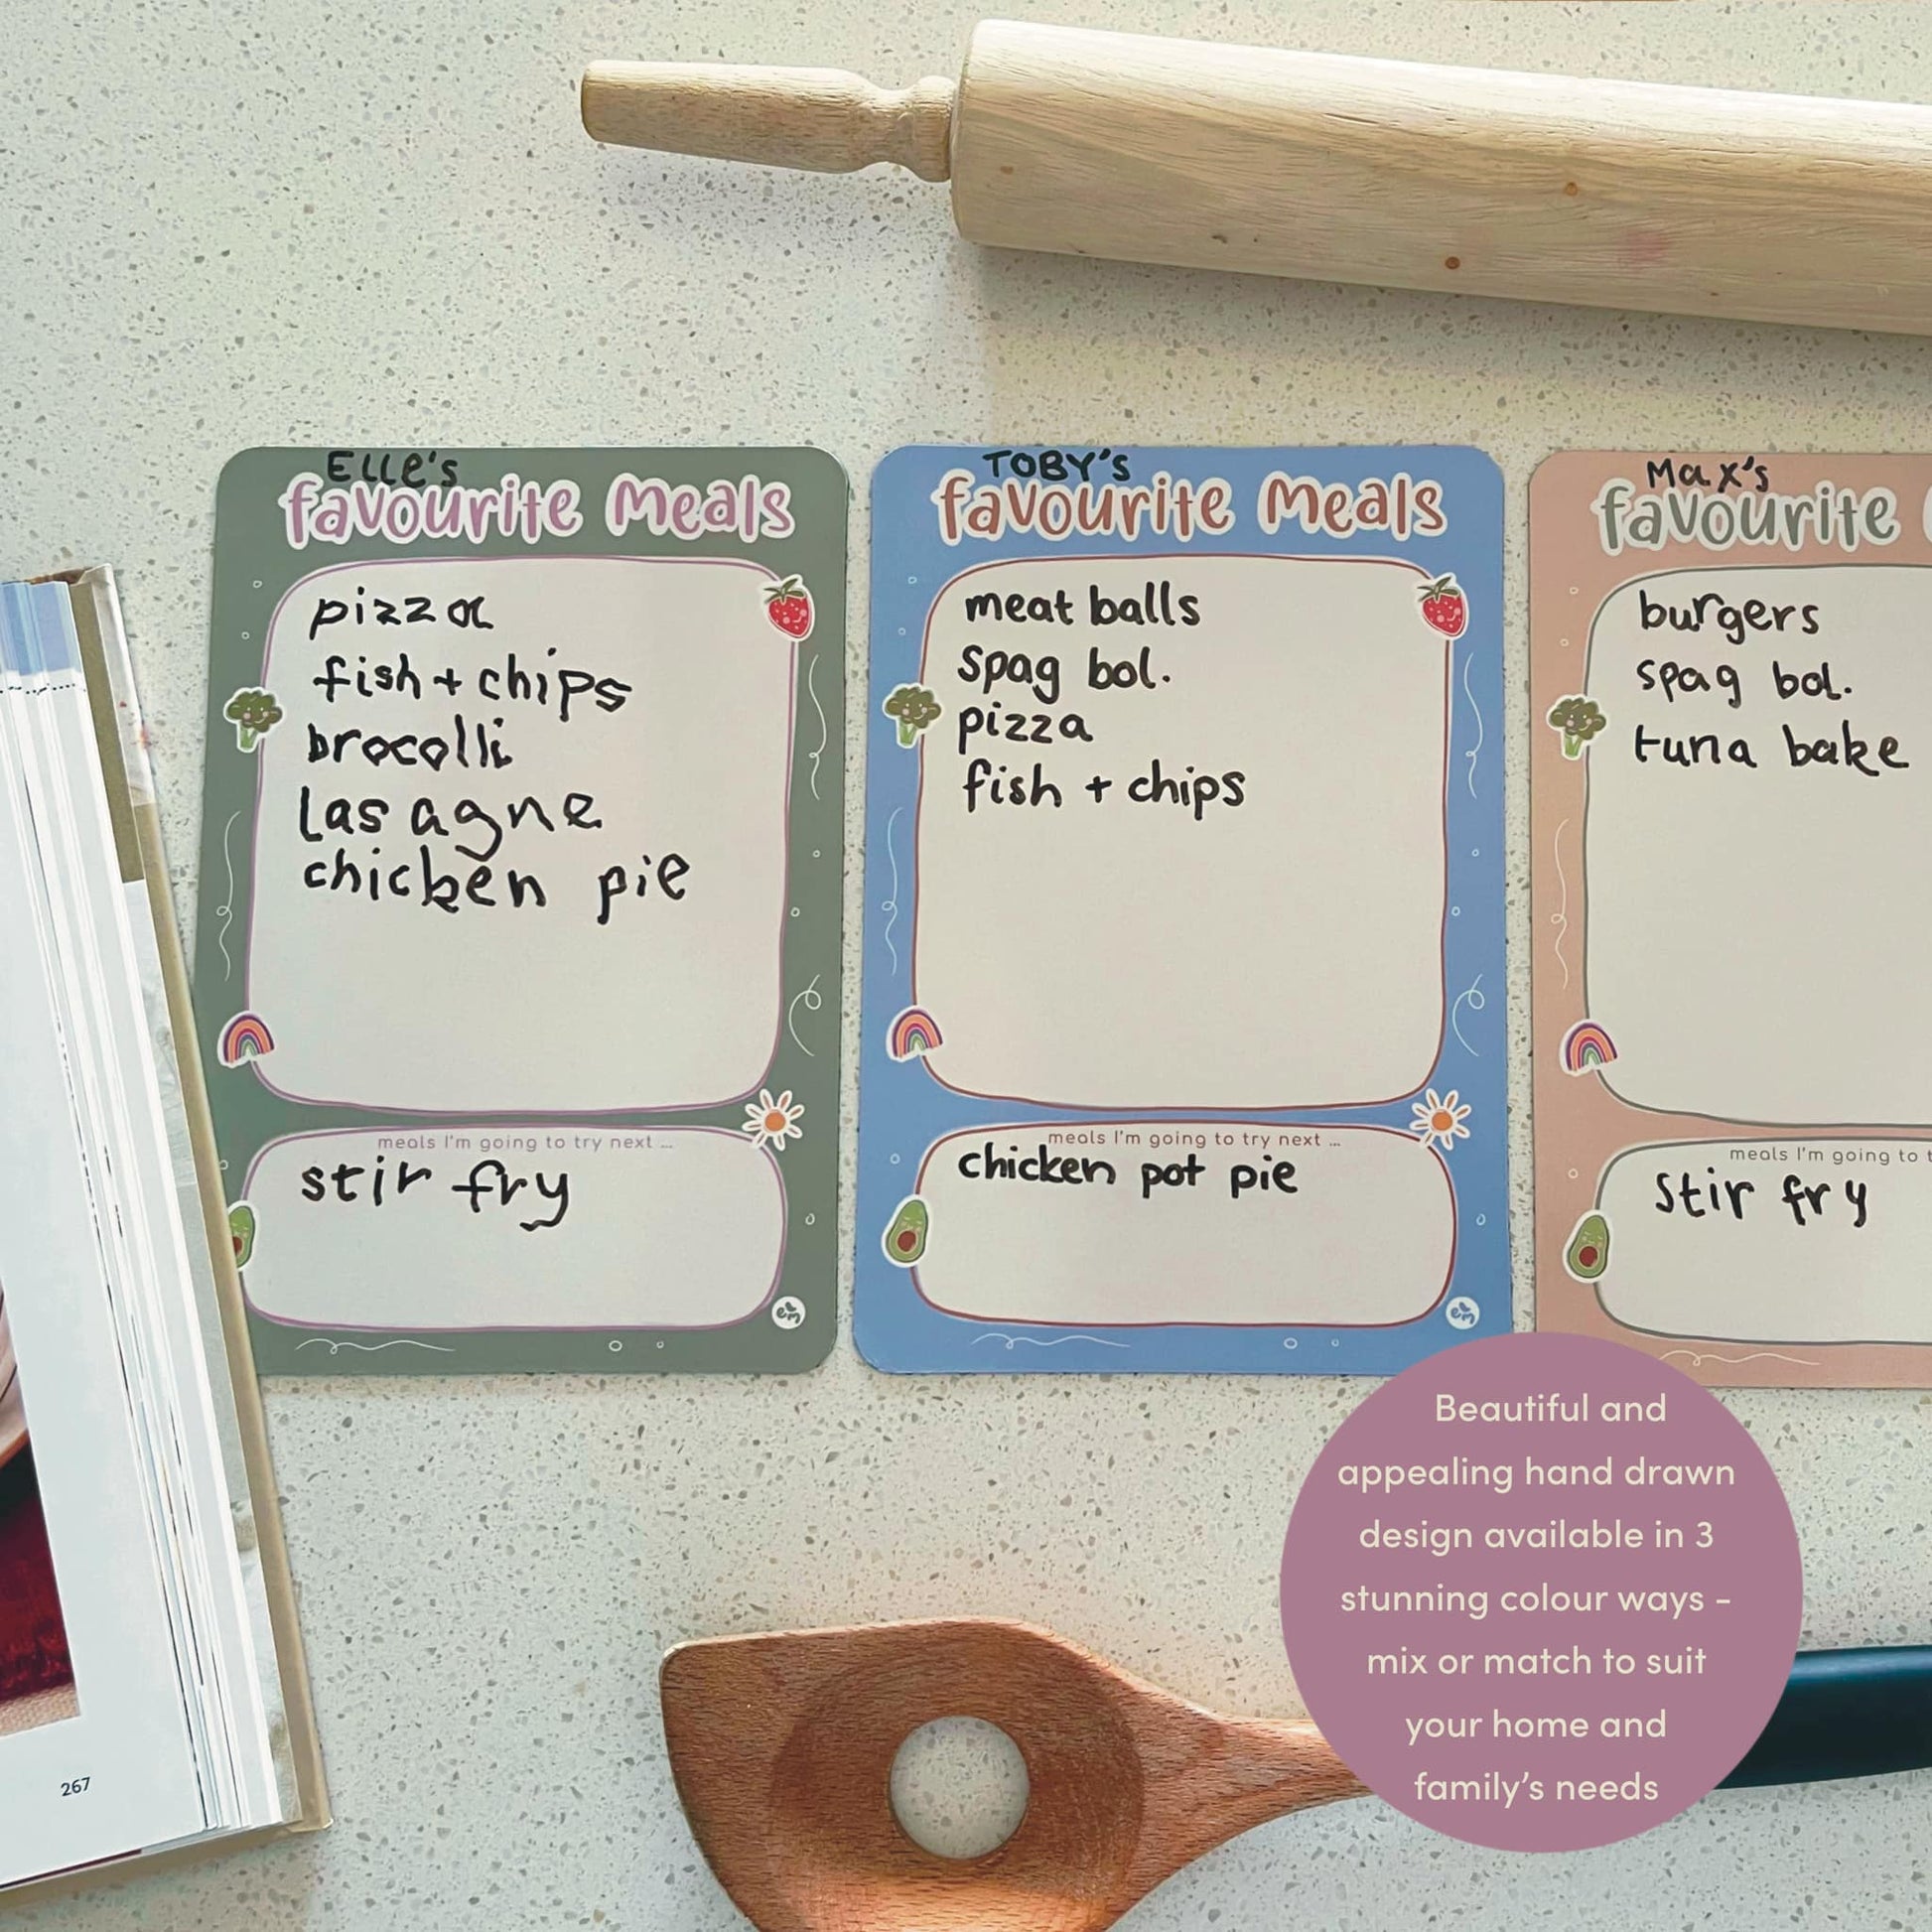 Elle's
favourite meals
pizza
fish + chips
brocolli
lasagne
chicken pie
meals I'm going to try next ...
stir fry
em
TOBY'S
favourite meals
meat balls
spag bol.
pizza
fish + chips
meals I'm going to try next ...
chicken pot pie
em
Max's
favourite
burgers
spag bol.
tuna bake
meals I'm going to t
stir fry
Beautiful and
appealing hand drawn
design available in 3
stunning colour ways -
mix or match to suit
your home and
family's needs
267